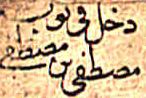 دخل في نور
مصطفى بن مصطفى